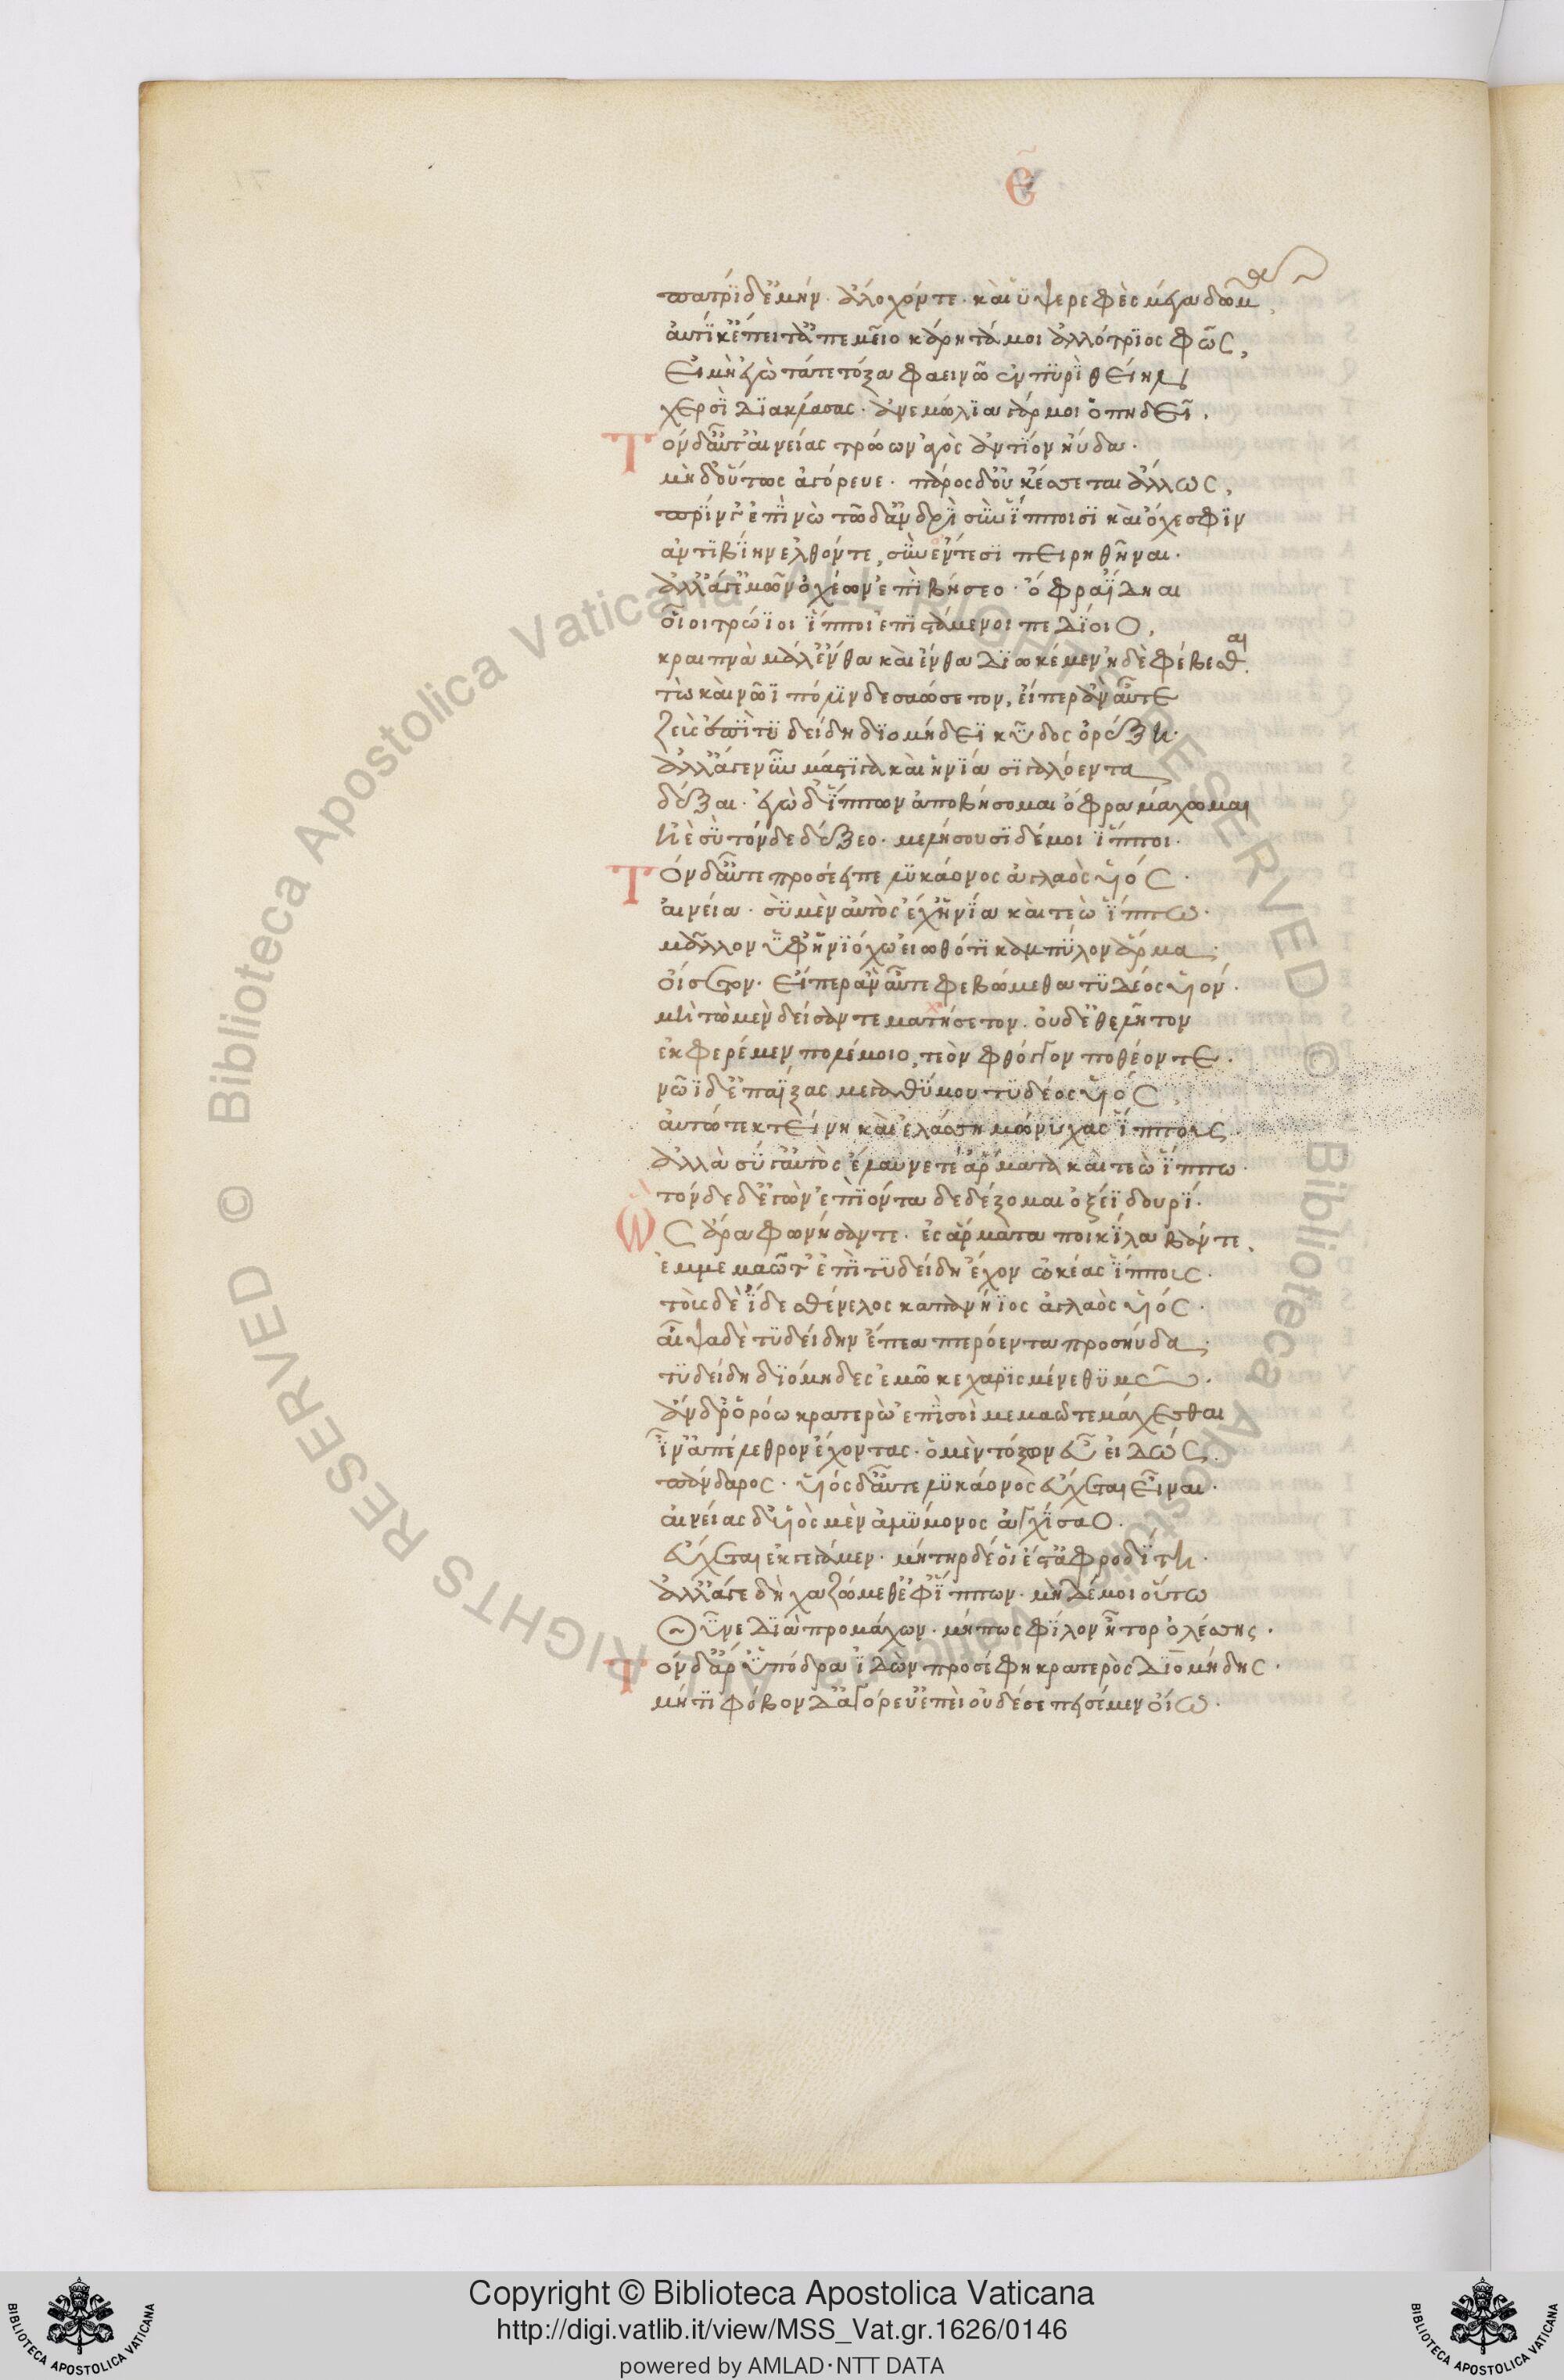 ε
πατρίδ' ἐμήν. ἄλοχόν τε. καὶ ὑψερεφὲς μέγα δῶμα,
αὐτίκ' ἔπειτ' ἀπ' ἐμεῖο κάρη τάμοι ἀλλότριος φῶς,
εἰ μὴ ἐγὼ τάδε τόξα φαεινῶ ἐν πυρὶ θείην
χερσὶ διακλάσας. ἀνεμώλια γάρ μοι ὀπηδεῖ.
Τὸν δ' αὖτ' αἰνείας τρώων ἀγὸς ἀντίον ηὔδα.
μὴ δ' οὕτως ἀγόρευε. πάρος δ' οὐκ ἔσσεται ἄλλως,
πρίν γ' ἐπὶ νὼ τῶδ' ἀνδρὶ σὺν ἵπποισι καὶ ὄχεσφιν
ἀντιβίην ἐλθόντε, σὺν ἔντεσι πειρηθῆναι.
ἀλλ' ἄγ' ἐμῶν ὀχέων ἐπιβήσεο. ὄφρα ἴδηαι
οἷοι τρώϊοι ἵπποι ἐπιστάμενοι πεδίοιο,
κραιπνὰ μάλ' ἔνθα καὶ ἔνθα διωκέμεν ἠδὲ φέβεσθαι.
τὼ καὶ νῶϊ πόλιν δε σαώσετον, εἴπερ ἂν αὖτε
ζεὺς ἐπὶ τυδείδη διομήδεϊ κῦδος ὀρέξη.
ἀλλ' ἄγε νῦν μάστιγα καὶ ἡνία σιγαλόεντα
δέξαι. ἐγὼ δ' ἵππων ἀποβήσομαι ὄφρα μάχωμαι
ἠὲ σὺ τόνδε δέδεξο. μελήσουσι δέ μοι ἵπποι.
Τὸν δ' αὖτε προσέειπε λυκάονος ἀγλαὸς υἱός.
αἰνεία. σὺ μὲν αὐτὸς ἔχ' ἡνία καὶ τεὼ ἵππω.
μᾶλλον ὑφ' ἡνιόχω εἰωθότι καμπύλον ἅρμα
οἴσετον. εἴπερ ἂν αὖτε φεβώμεθα τυδέος υἱόν.
μὴ τὼ μὲν δείσαντε ματήσετον. οὐδ' ἐθέλητον
ἐκφερέμεν πολέμοιο, τεὸν φθόγγον ποθέοντε.
νῶϊ δ' ἐπαΐξας μεγαθύμου τυδέος υἱός,
αὐτώ τε κτείνη καὶ ἐλάσση μώνυχας ἵππους.
ἀλλὰ σύ γ' αὐτὸς ἔλαυνε τέ' ἅρματα καὶ τεὼ ἵππω.
τόνδε δ' ἐγὼν ἐπιόντα δεδέξομαι ὀξέϊ δουρί.
Ὣς ἄρα φωνήσαντε. ἐς ἅρματα ποικίλα βάντε,
ἐμμεμαῶτ' ἐπὶ τυδείδη ἔχον ὠκέας ἵππους.
τοὺς δὲ ἴδε σθένελος καπανήϊος ἀγλαὸς υἱός.
αἶψα δὲ τυδείδην ἔπεα πτερόεντα προσηύδα
τυδείδη διόμηδες ἐμῶ κεχαρισμένε θυμῶ.
ἄνδρ' ὁρόω κρατερὼ ἐπὶ σοὶ μεμαῶτε μάχεσθαι
ἶν' ἀπέλεθρον ἔχοντας. ὁ μὲν τόξων εὖ εἰδώς
πάνδαρος. υἱὸς δ' αὖτε λυκάονος εὔχεται εἶναι.
αἰνείας δ' υἱὸς μὲν ἀμύμονος ἀγχίσαο.
εὔχεται ἐκγεγάμεν. μήτηρ δέ οἵ ἐστ' ἀφροδίτη.
ἀλλ' ἄγε δὴ χαζώμεθ' ἐφ' ἵππων. μὴ δέ μοι οὕτω
θῦνε διὰ προμάχων. μήπως φίλον ἦτορ ὀλέσσης.
Τὸν δ' ἄρ' ὑπόδρα ἰδὼν προσέφη κρατερὸς διομήδης.
μήτι φόβον δ' ἀγόρευ' ἐπεὶ οὐδέ σε πεισέμεν οἴω.
© Biblioteca Apostolica Vaticana ALL RIGHTS RESERVED © Biblioteca Apostolica Vaticana ALL RIGHTS RESERVED
Copyright © Biblioteca Apostolica Vaticana
http://digi.vatlib.it/view/MSS_Vat.gr.1626/0146
powered by AMLAD·NTT DATA
BIBLIOTECA APOSTOLICA VATICANA
BIBLIOTECA APOSTOLICA VATICANA